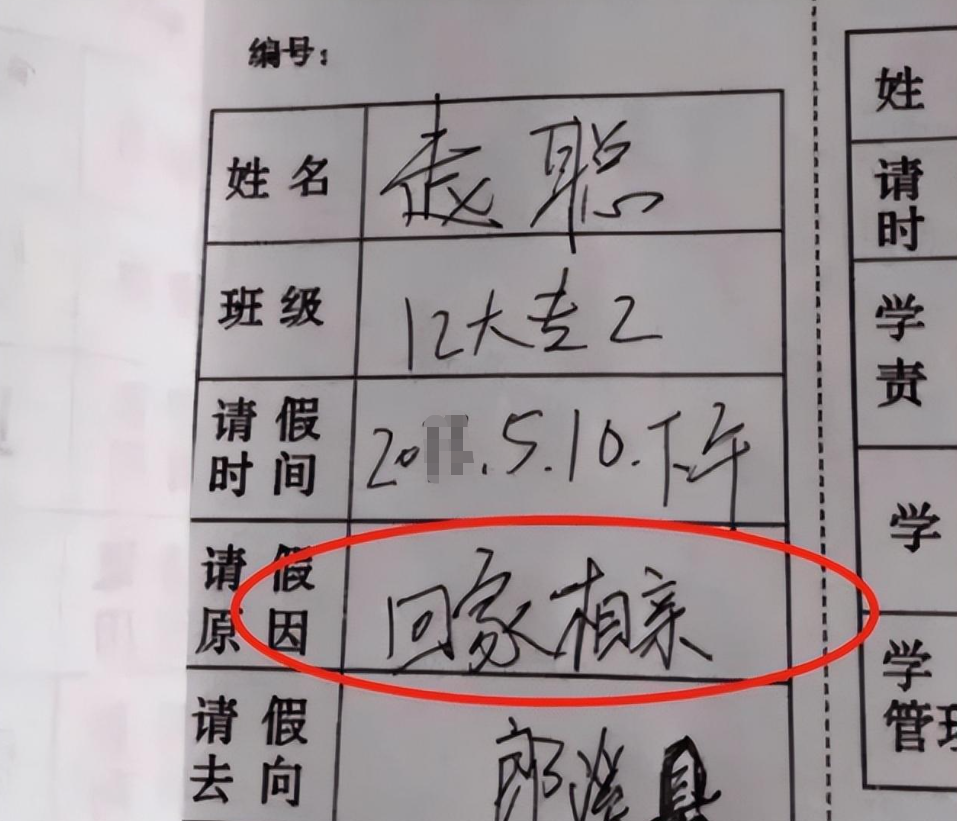 编号：
姓名 赵聪
班级 12大专2
请假时间 20.5.10.下午
请假原因 回家相亲
请假去向 郎溪县
姓
请
时
学
责
学
学
管理